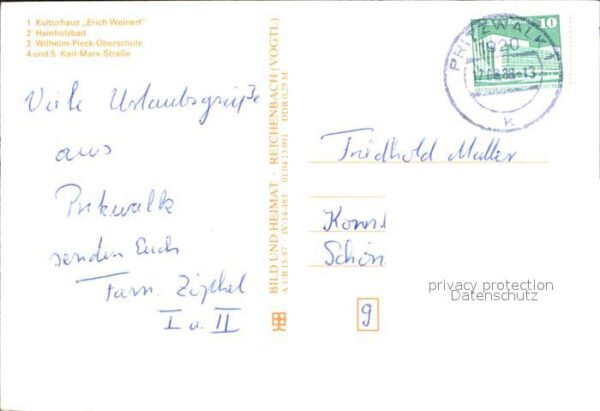 1 Kulturhaus „Erich Weinert"
2 Hainholzbad
3 Wilhelm-Pieck-Oberschule
4 und 5 Karl-Marx-Straße
Viele Urlaubsgrüße
aus
Pritzwalk
senden Euch
Fam.
I u. II
BILD UND HEIMAT · REICHENBACH (VOGTL)
A 1/B 15/87 IV-14-483 01 04 13 091 DDR 0,25 M
PRITZWALK 1
1920
-13
k
10
Friedhold Müller
Schön
g
privacy protection
Datenschutz